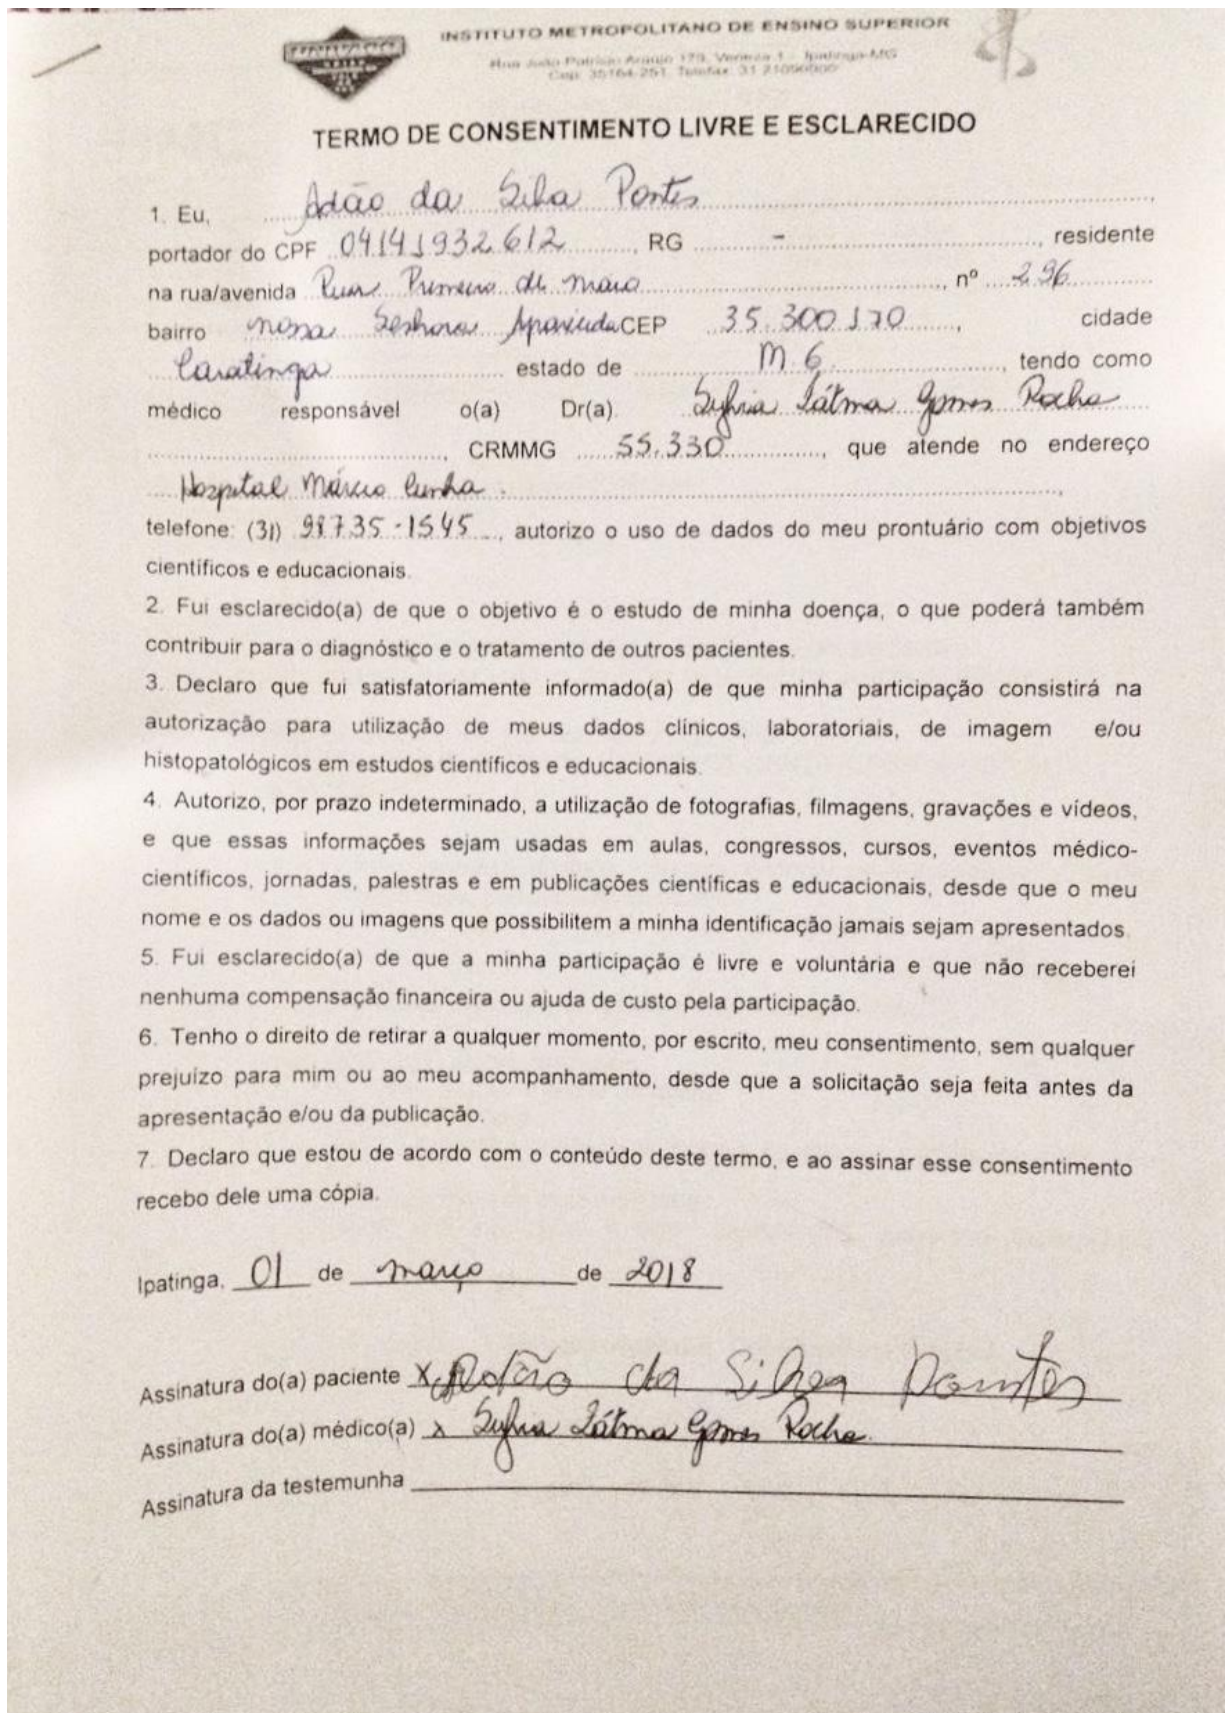 INSTITUTO METROPOLITANO DE ENSINO SUPERIOR
Rua João Patrício Araújo 179, Veneza 1 - Ipatinga-MG
Cep: 35164-251. Telefax: 31 21090900
TERMO DE CONSENTIMENTO LIVRE E ESCLARECIDO
1. Eu, Adão da Silva Pontes
portador do CPF 04141932612, RG -, residente
na rua/avenida Rua Primeiro de maio, nº 296
bairro nossa Senhora Aparecida CEP 35.300170, cidade
Caratinga estado de M.G, tendo como
médico responsável o(a) Dr(a). Sylvia Fátma Gomes Rocha
, CRMMG 55.330, que atende no endereço
Hospital Márcio Cunha.
telefone: (31) 98735-1545, autorizo o uso de dados do meu prontuário com objetivos
científicos e educacionais.
2. Fui esclarecido(a) de que o objetivo é o estudo de minha doença, o que poderá também
contribuir para o diagnóstico e o tratamento de outros pacientes.
3. Declaro que fui satisfatoriamente informado(a) de que minha participação consistirá na
autorização para utilização de meus dados clínicos, laboratoriais, de imagem e/ou
histopatológicos em estudos científicos e educacionais.
4. Autorizo, por prazo indeterminado, a utilização de fotografias, filmagens, gravações e vídeos,
e que essas informações sejam usadas em aulas, congressos, cursos, eventos médico-
científicos, jornadas, palestras e em publicações científicas e educacionais, desde que o meu
nome e os dados ou imagens que possibilitem a minha identificação jamais sejam apresentados.
5. Fui esclarecido(a) de que a minha participação é livre e voluntária e que não receberei
nenhuma compensação financeira ou ajuda de custo pela participação.
6. Tenho o direito de retirar a qualquer momento, por escrito, meu consentimento, sem qualquer
prejuízo para mim ou ao meu acompanhamento, desde que a solicitação seja feita antes da
apresentação e/ou da publicação.
7. Declaro que estou de acordo com o conteúdo deste termo, e ao assinar esse consentimento
recebo dele uma cópia.
Ipatinga, 01 de março de 2018
Assinatura do(a) paciente X Adão da Silva Pontes
Assinatura do(a) médico(a) x Sylvia Fátma Gomes Rocha.
Assinatura da testemunha